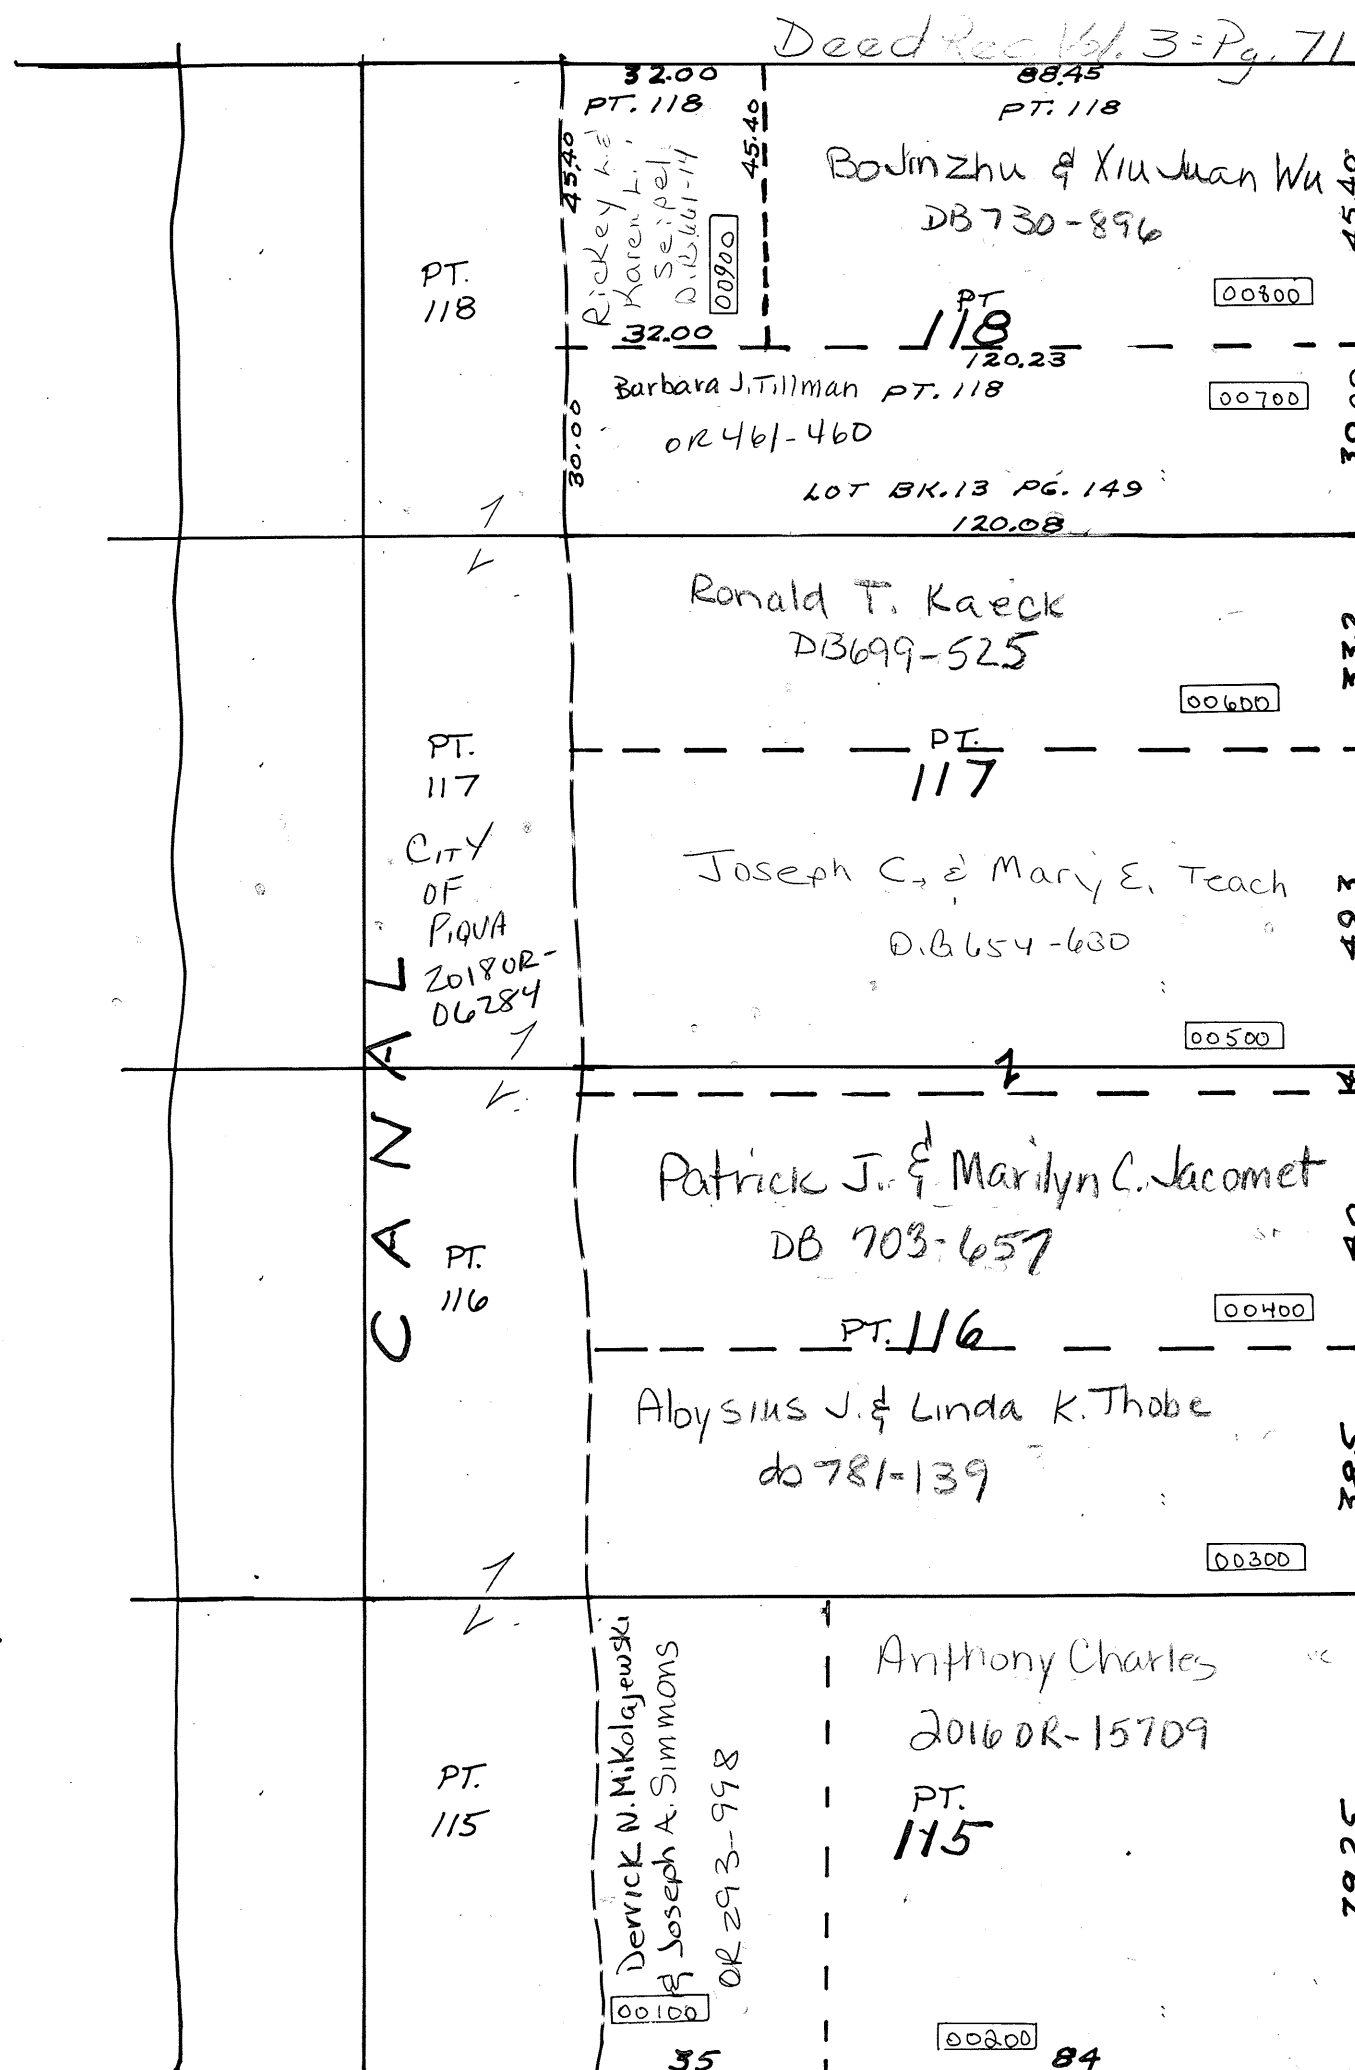 Deed Rec. Vol. 3 = Pg. 71
32.00
PT. 118
45.40
45.40
Rickey L. &
Karen L.
Seipel
D.B. 661-14
00900
32.00
88.45
PT. 118
BoJin Zhu & Xiu Juan Wu
DB 730-896
45.40
00800
PT
118
120.23
PT.
118
Barbara J. Tillman PT. 118
OR 461-460
00700
30.00
30.00
LOT BK. 13 PG. 149
120.08
Ronald T. Kaeck
DB699-525
33.2
00600
PT.
117
PT.
117
CITY
OF
PIQUA
2018OR-
06284
Joseph C. & Mary E. Teach
D.B 654-630
49.3
00500
CANAL
Patrick J. & Marilyn C. Jacomet
DB 703-657
40
00400
PT. 116
PT.
116
Aloysius J. & Linda K. Thobe
db 781-139
38.5
00300
Derrick N. Mikolajewski
& Joseph A. Simmons
OR 293-998
00100
35
Anthony Charles
2016 OR-15709
PT.
115
PT.
115
79.25
00200
84